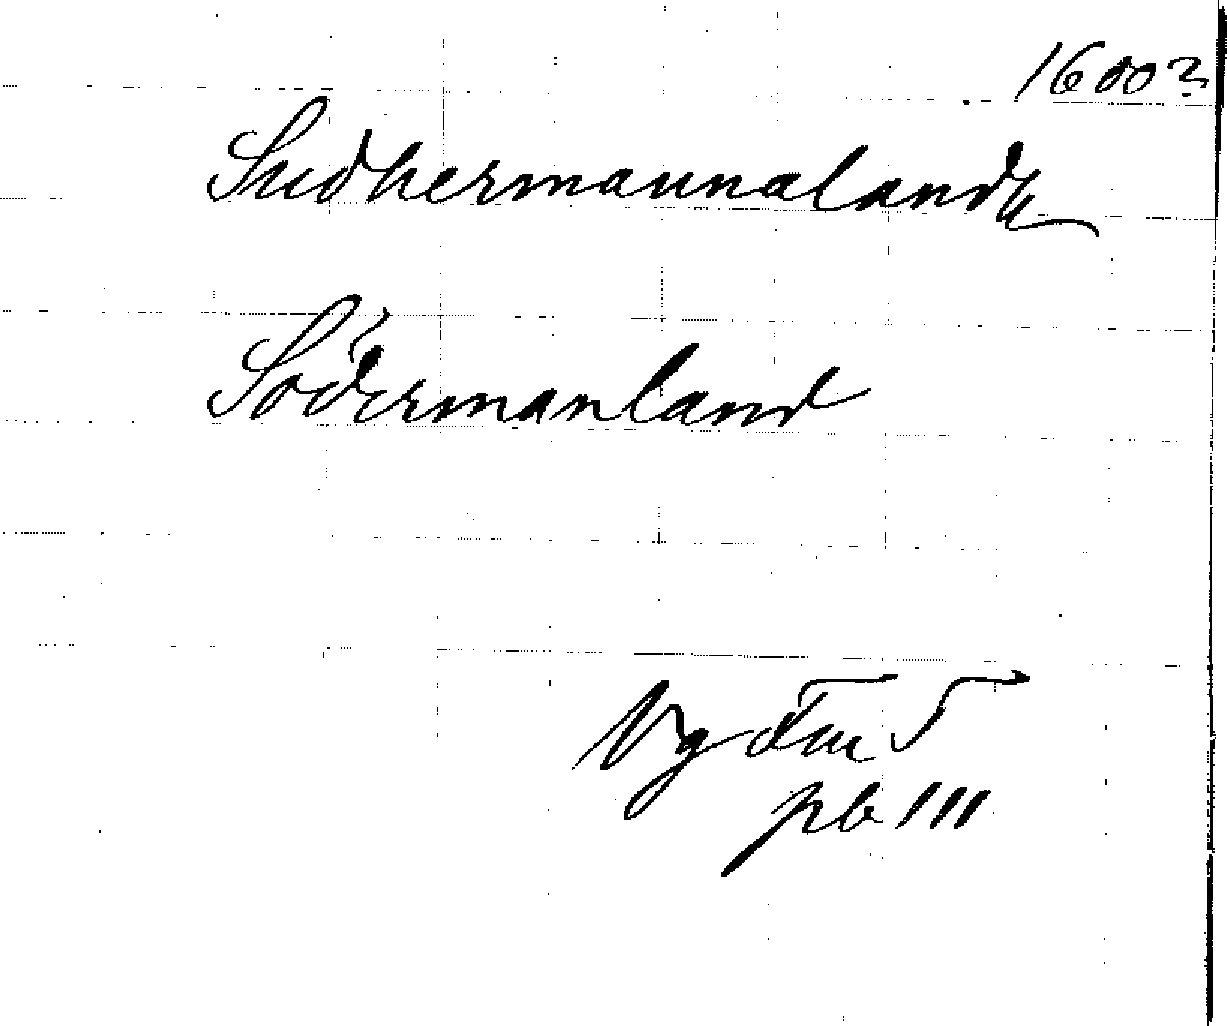 1600?
Sudhermannalandh
Södermanland
Vg Fm 5
pb III